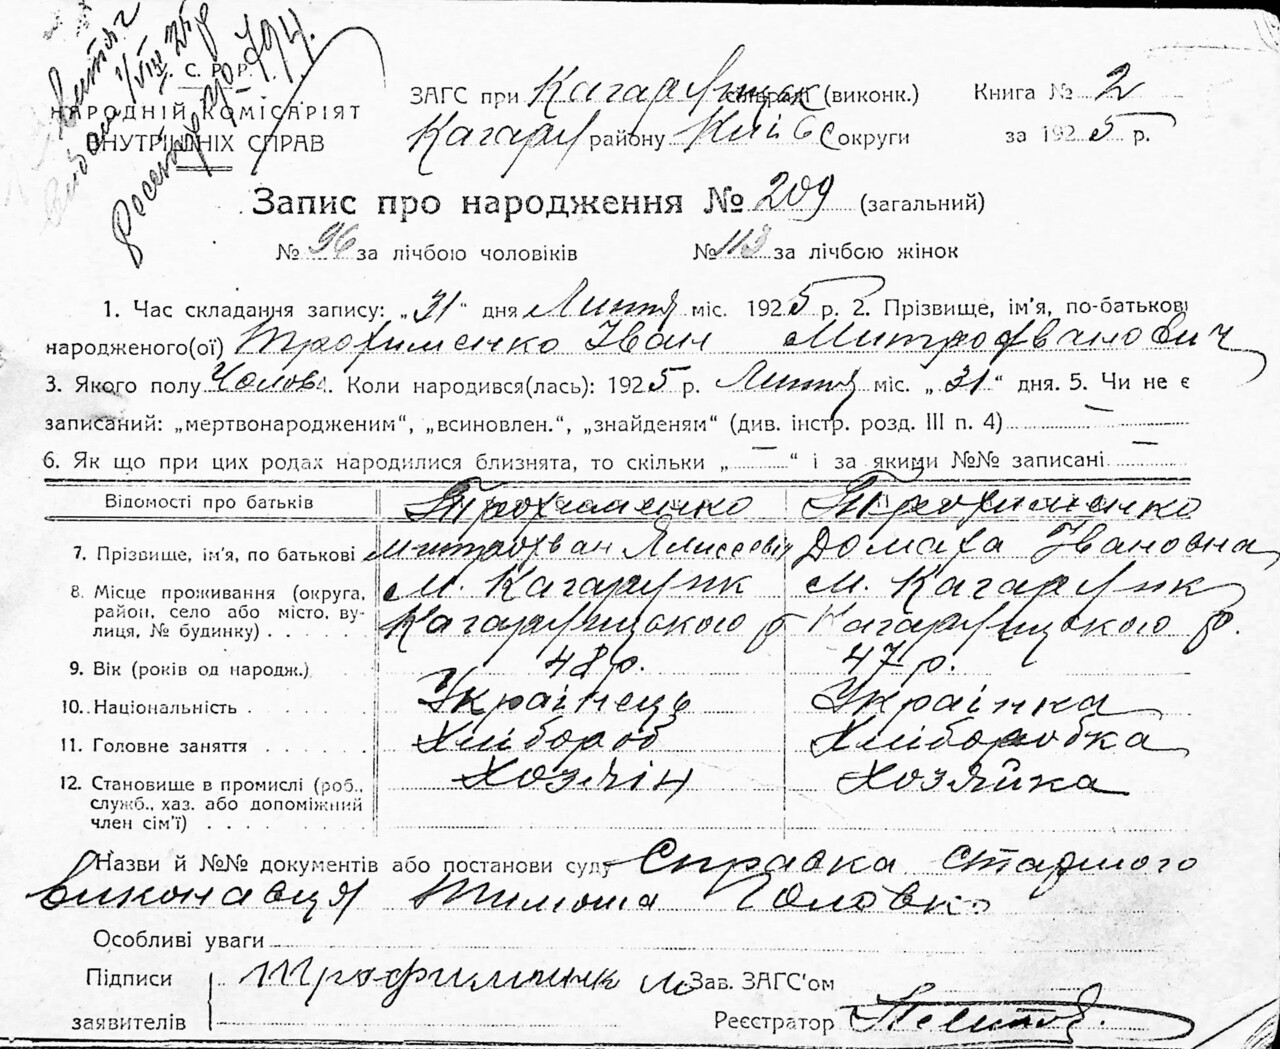 У. С. Р. Р.
НАРОДНІЙ КОМІСАРІЯТ
ВНУТРІШНІХ СПРАВ
ЗАГС при Кагарлицьк сельраді (виконк.)
Кагарл району Київс округи
Книга № 2
за 1925 р.
Запис про народження № 209 (загальний)
№ 96 за лічбою чоловіків № 113 за лічбою жінок
1. Час складання запису: „31“ дня Липня міс. 1925 р. 2. Прізвище, ім'я, по-батькові
народженого(ої) Трохименко Іван Митрофванович
3. Якого полу Чолов. 4. Коли народився(лась): 1925 р. Липня міс. „31“ дня. 5. Чи не є
записаний: „мертвонародженим“, „всиновлен.“, „знайденям“ (див. інстр. розд. III п. 4) —
6. Як що при цих родах народилися близнята, то скільки „—“ і за якими №№ записані —
Відомості про батьків
Трохименко Трохименко
7. Прізвище, ім'я, по батькові Митрофван Ялисеєвіч Домаха Івановна
8. Місце проживання (округа, район, село або місто, вулиця, № будинку) м. Кагарлик Кагарлицького р м. Кагарлик Кагарлицького р.
9. Вік (років од народж.) 48 р. 47 р.
10. Національність Українець Українка
11. Головне заняття Хлібороб Хліборобка
12. Становище в промислі (роб., служб., хаз. або допоміжний член сім'ї) Хозяін Хозяйка
Назви й №№ документів або постанови суду Справка старшого
виконавця Тимоша Головко
Особливі уваги
Підписи
заявителів
Трофименк м
Зав. ЗАГС'ом
Реєстратор